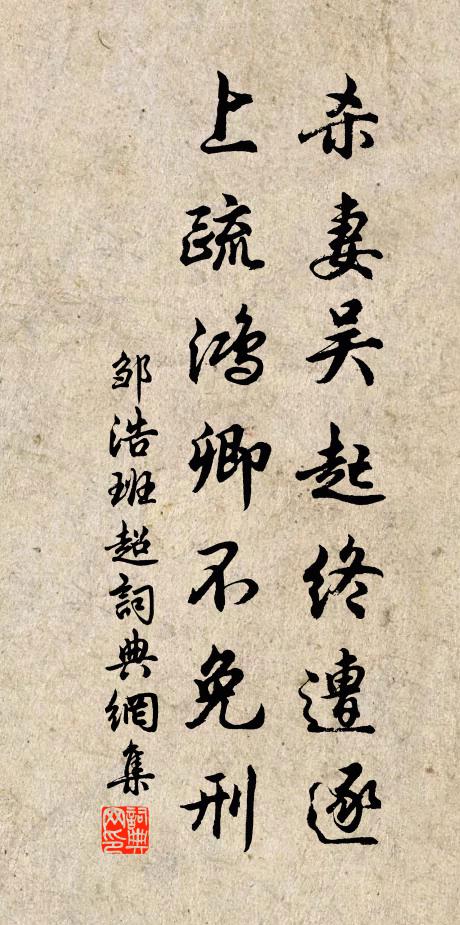 杀妻吴起终遭逐
上疏鸿卿不免刑
邹浩班超詞典網集
詞典网印